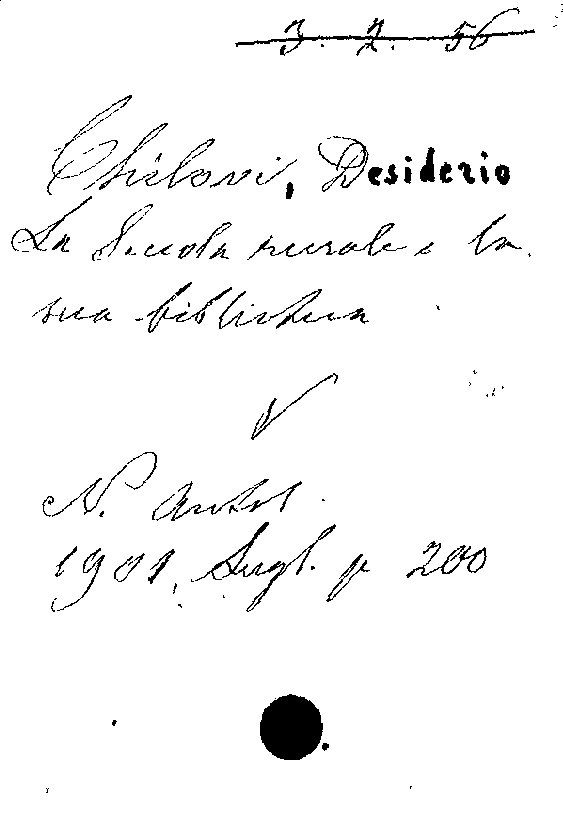 3. 2. 56
Chilovi, Desiderio
La Scuola rurale e la
sua biblioteca
N. Antol.
1901, Lugl. p 200